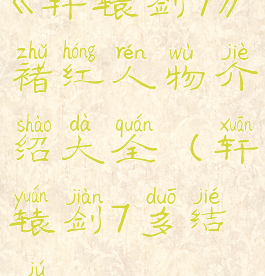 《轩辕剑7》
zhǔ hóng rén wù jiè
褚红人物介
shào dà quán xuān
绍大全（轩
yuán jiàn duō jié
辕剑7多结
jú